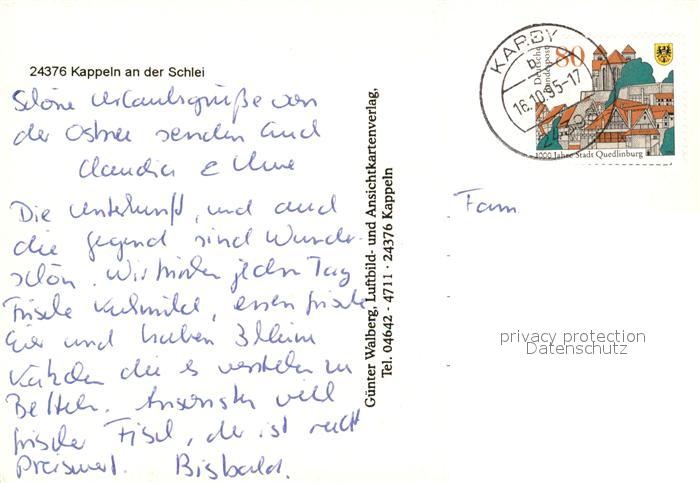 24376 Kappeln an der Schlei
Schöne Urlaubsgrüße von
der Ostsee senden Euch
Claudia & Uwe
Die Unterkunft, und auch
die Gegend sind Wunder-
schön. Wir trinken jeden Tag
frische Kuhmilch, essen frische
Eier und haben 3 kleine
Kätzchen die es verstehen zu
Betteln. Ansonsten viel
frischer Fisch, der ist recht
Preiswert. Bisbald.
Günter Walberg, Luftbild- und Ansichtkartenverlag,
Tel. 04642 - 4711 · 24376 Kappeln
KARBY
b
16.10.95-17
24398
Deutsche
Bundespost
80
1000 Jahre Stadt Quedlinburg
Fam.
privacy protection
Datenschutz